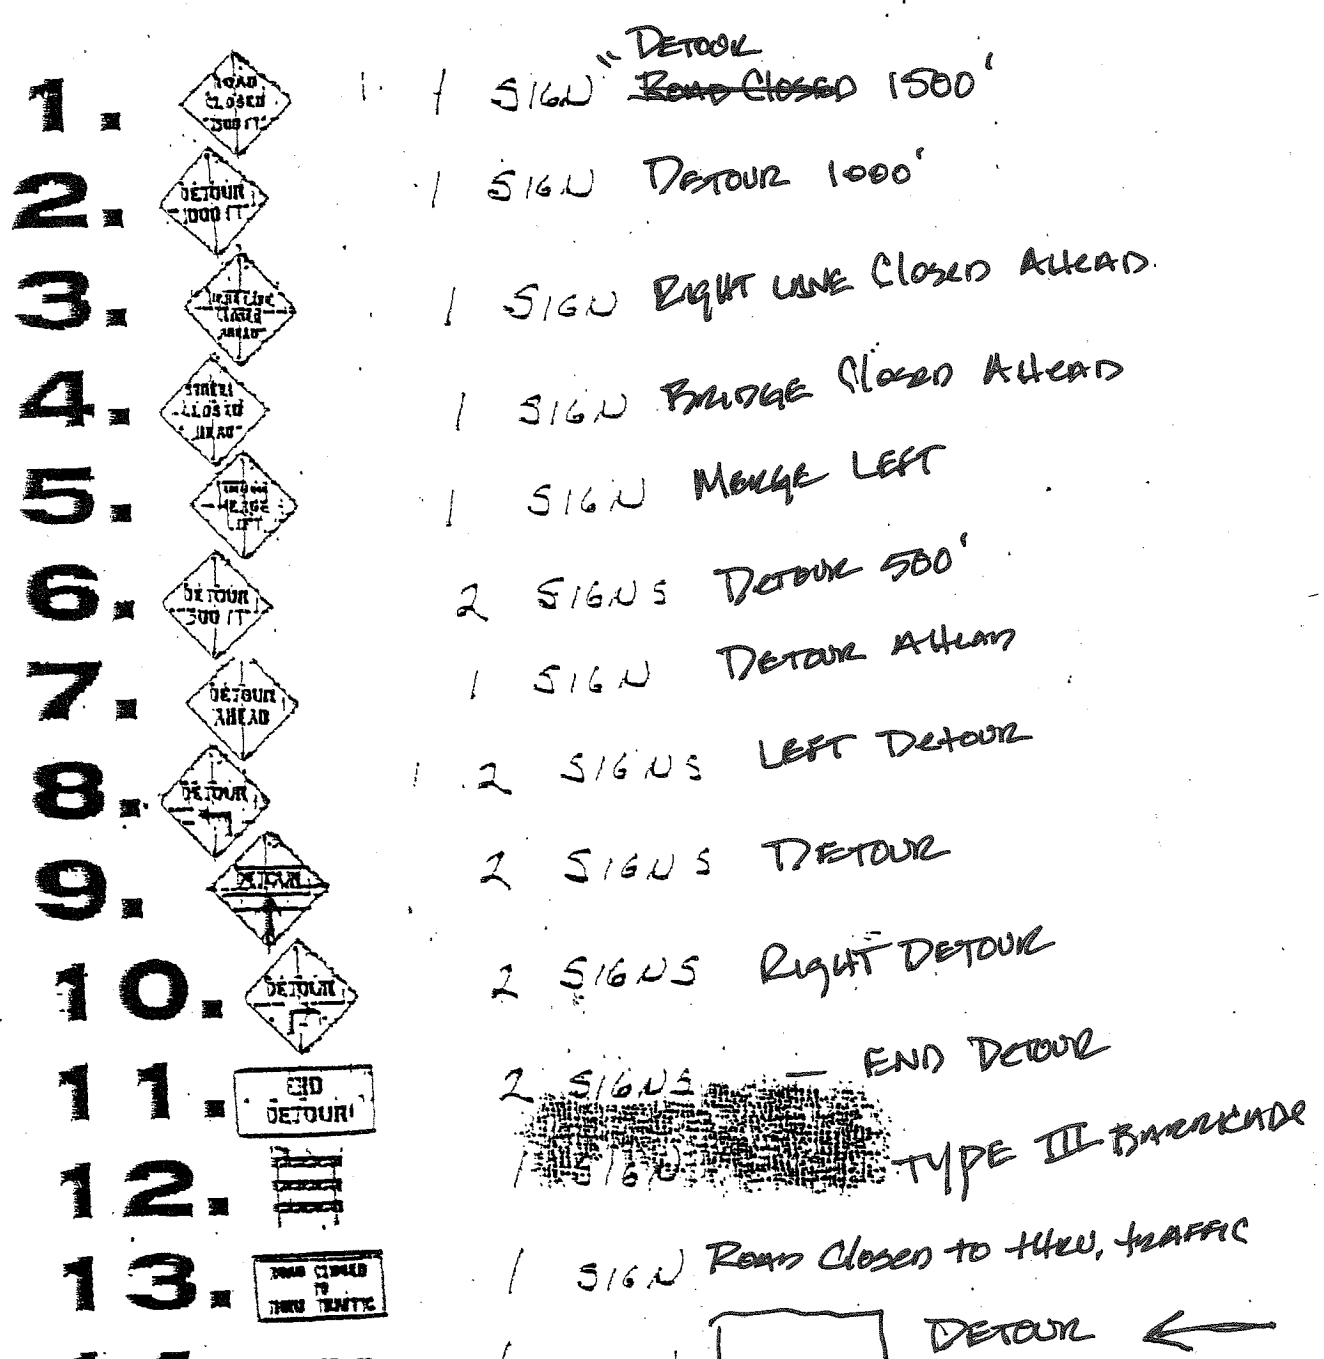 DETOUR
1. ROAD CLOSED 1500 FT 1 SIGN " ROAD CLOSED 1500'
2. DETOUR 1000 FT 1 SIGN DETOUR 1000'
3. RIGHT LANE CLOSED AHEAD 1 SIGN RIGHT LANE CLOSED AHEAD
4. STREET CLOSED AHEAD 1 SIGN BRIDGE CLOSED AHEAD
5. MERGE LEFT 1 SIGN MERGE LEFT
6. DETOUR 500 FT 2 SIGNS DETOUR 500'
7. DETOUR AHEAD 1 SIGN DETOUR AHEAD
8. DETOUR 2 SIGNS LEFT DETOUR
9. DETOUR 2 SIGNS DETOUR
10. DETOUR 2 SIGNS RIGHT DETOUR
11. END DETOUR 2 SIGNS — END DETOUR
12. 1 SIGN TYPE III BARRICADE
13. ROAD CLOSED TO THRU TRAFFIC 1 SIGN ROAD CLOSED TO THRU. TRAFFIC
DETOUR ←